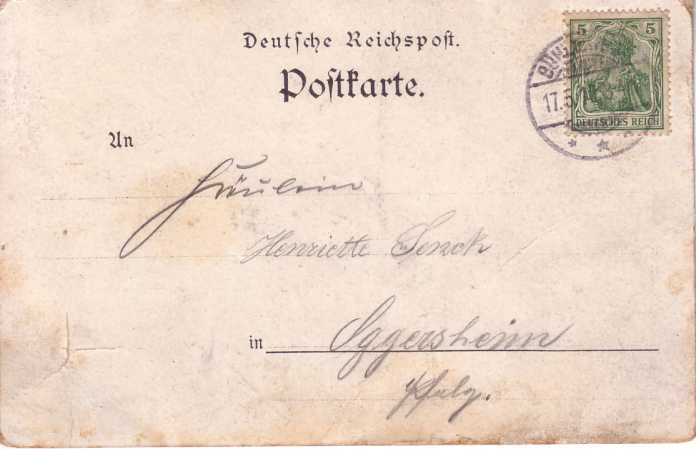 Deutsche Reichspost.
Postkarte.
5 5
DEUTSCHES REICH
17.5
An
Fräulein
Henriette
in Oggersheim
Pfalz.